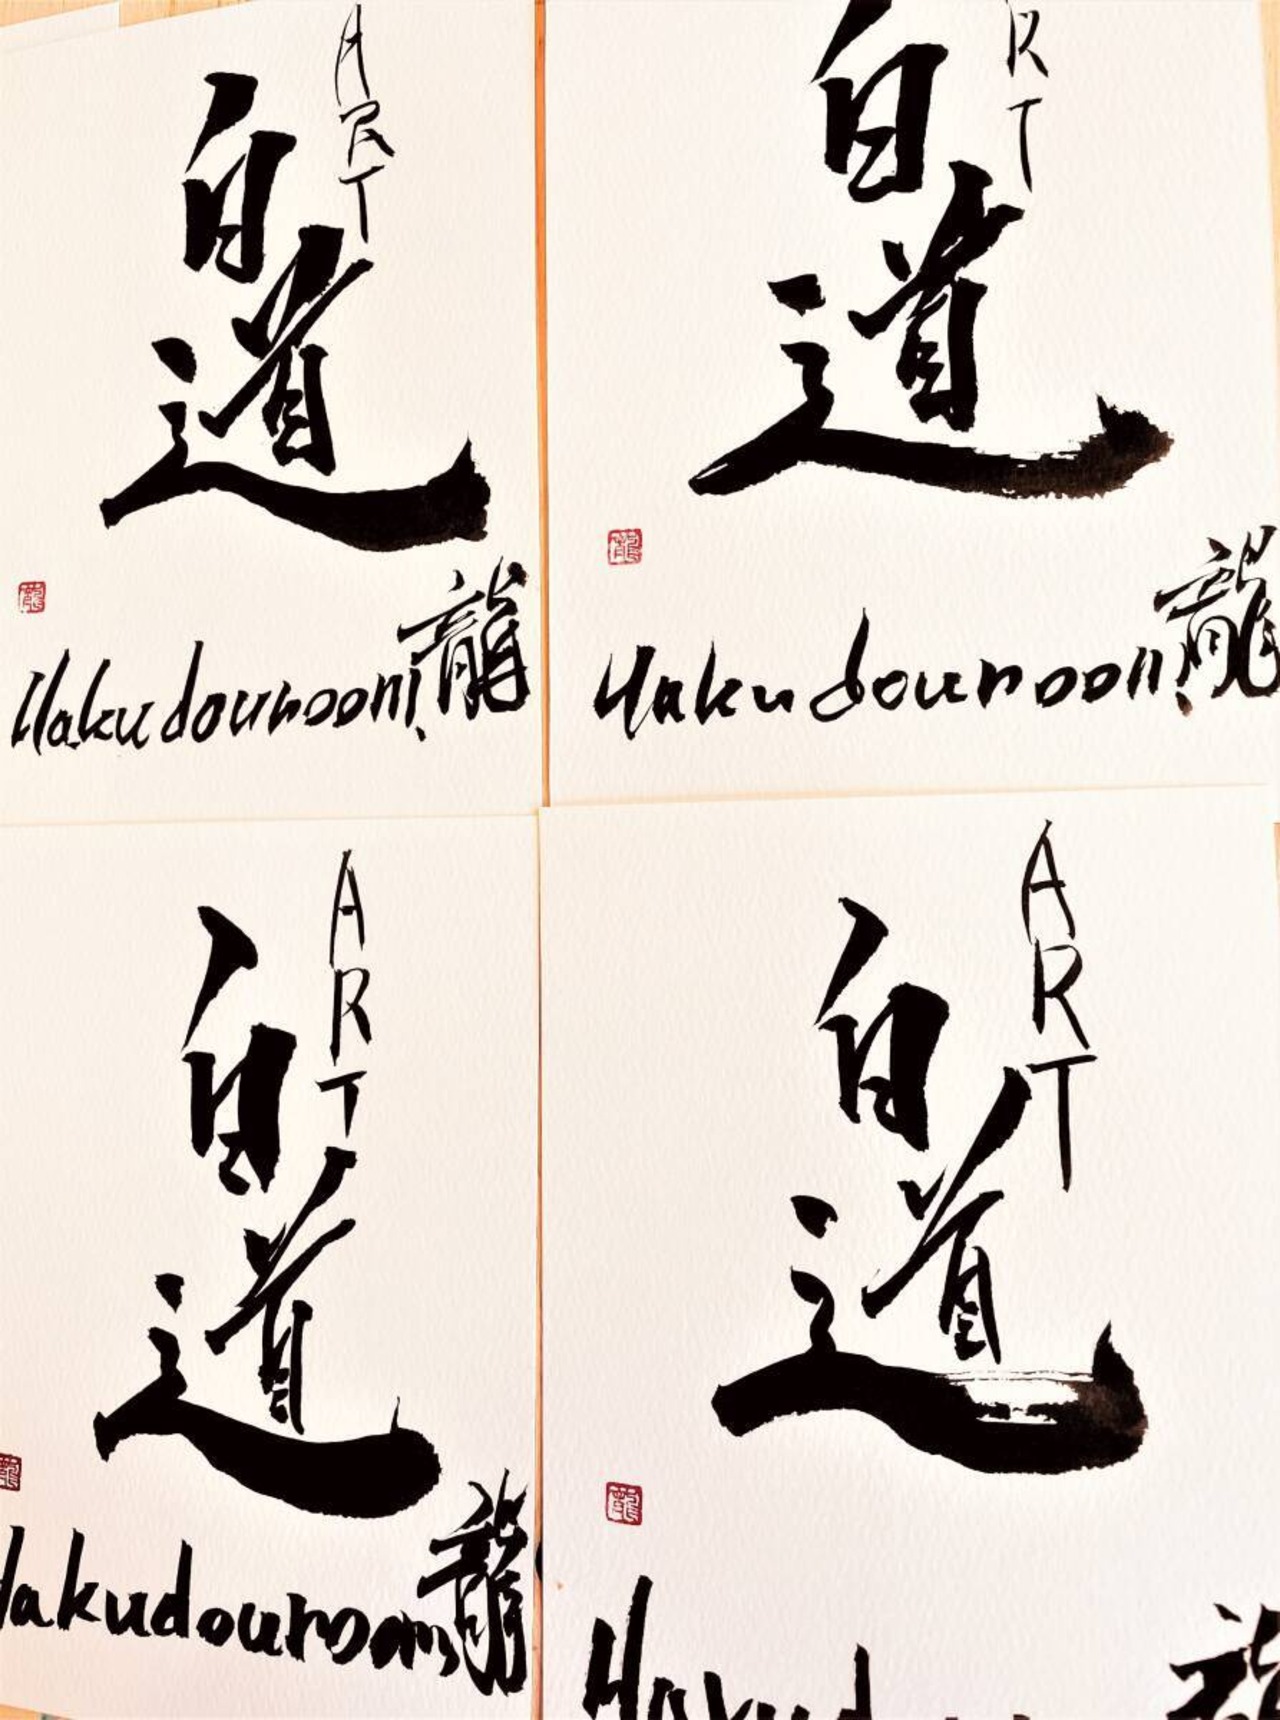 ART
白道
龍
Hakudouroom!
龍
RT
白道
龍
Hakudouroom!
龍
ART
白道
龍
Hakudouroom
龍
ART
白道
龍
龍